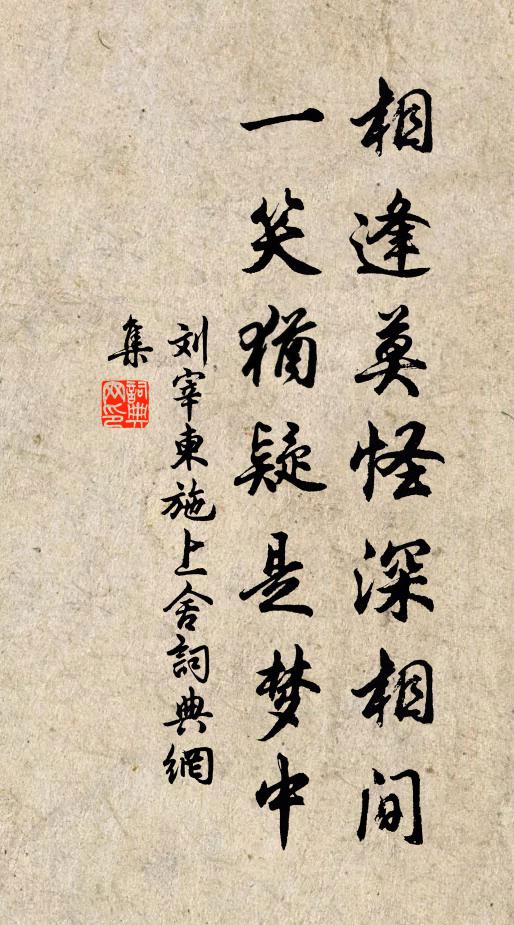 相逢莫怪深相间
一笑犹疑是梦中
刘宰東施上舍詞典網
集
詞典
网印